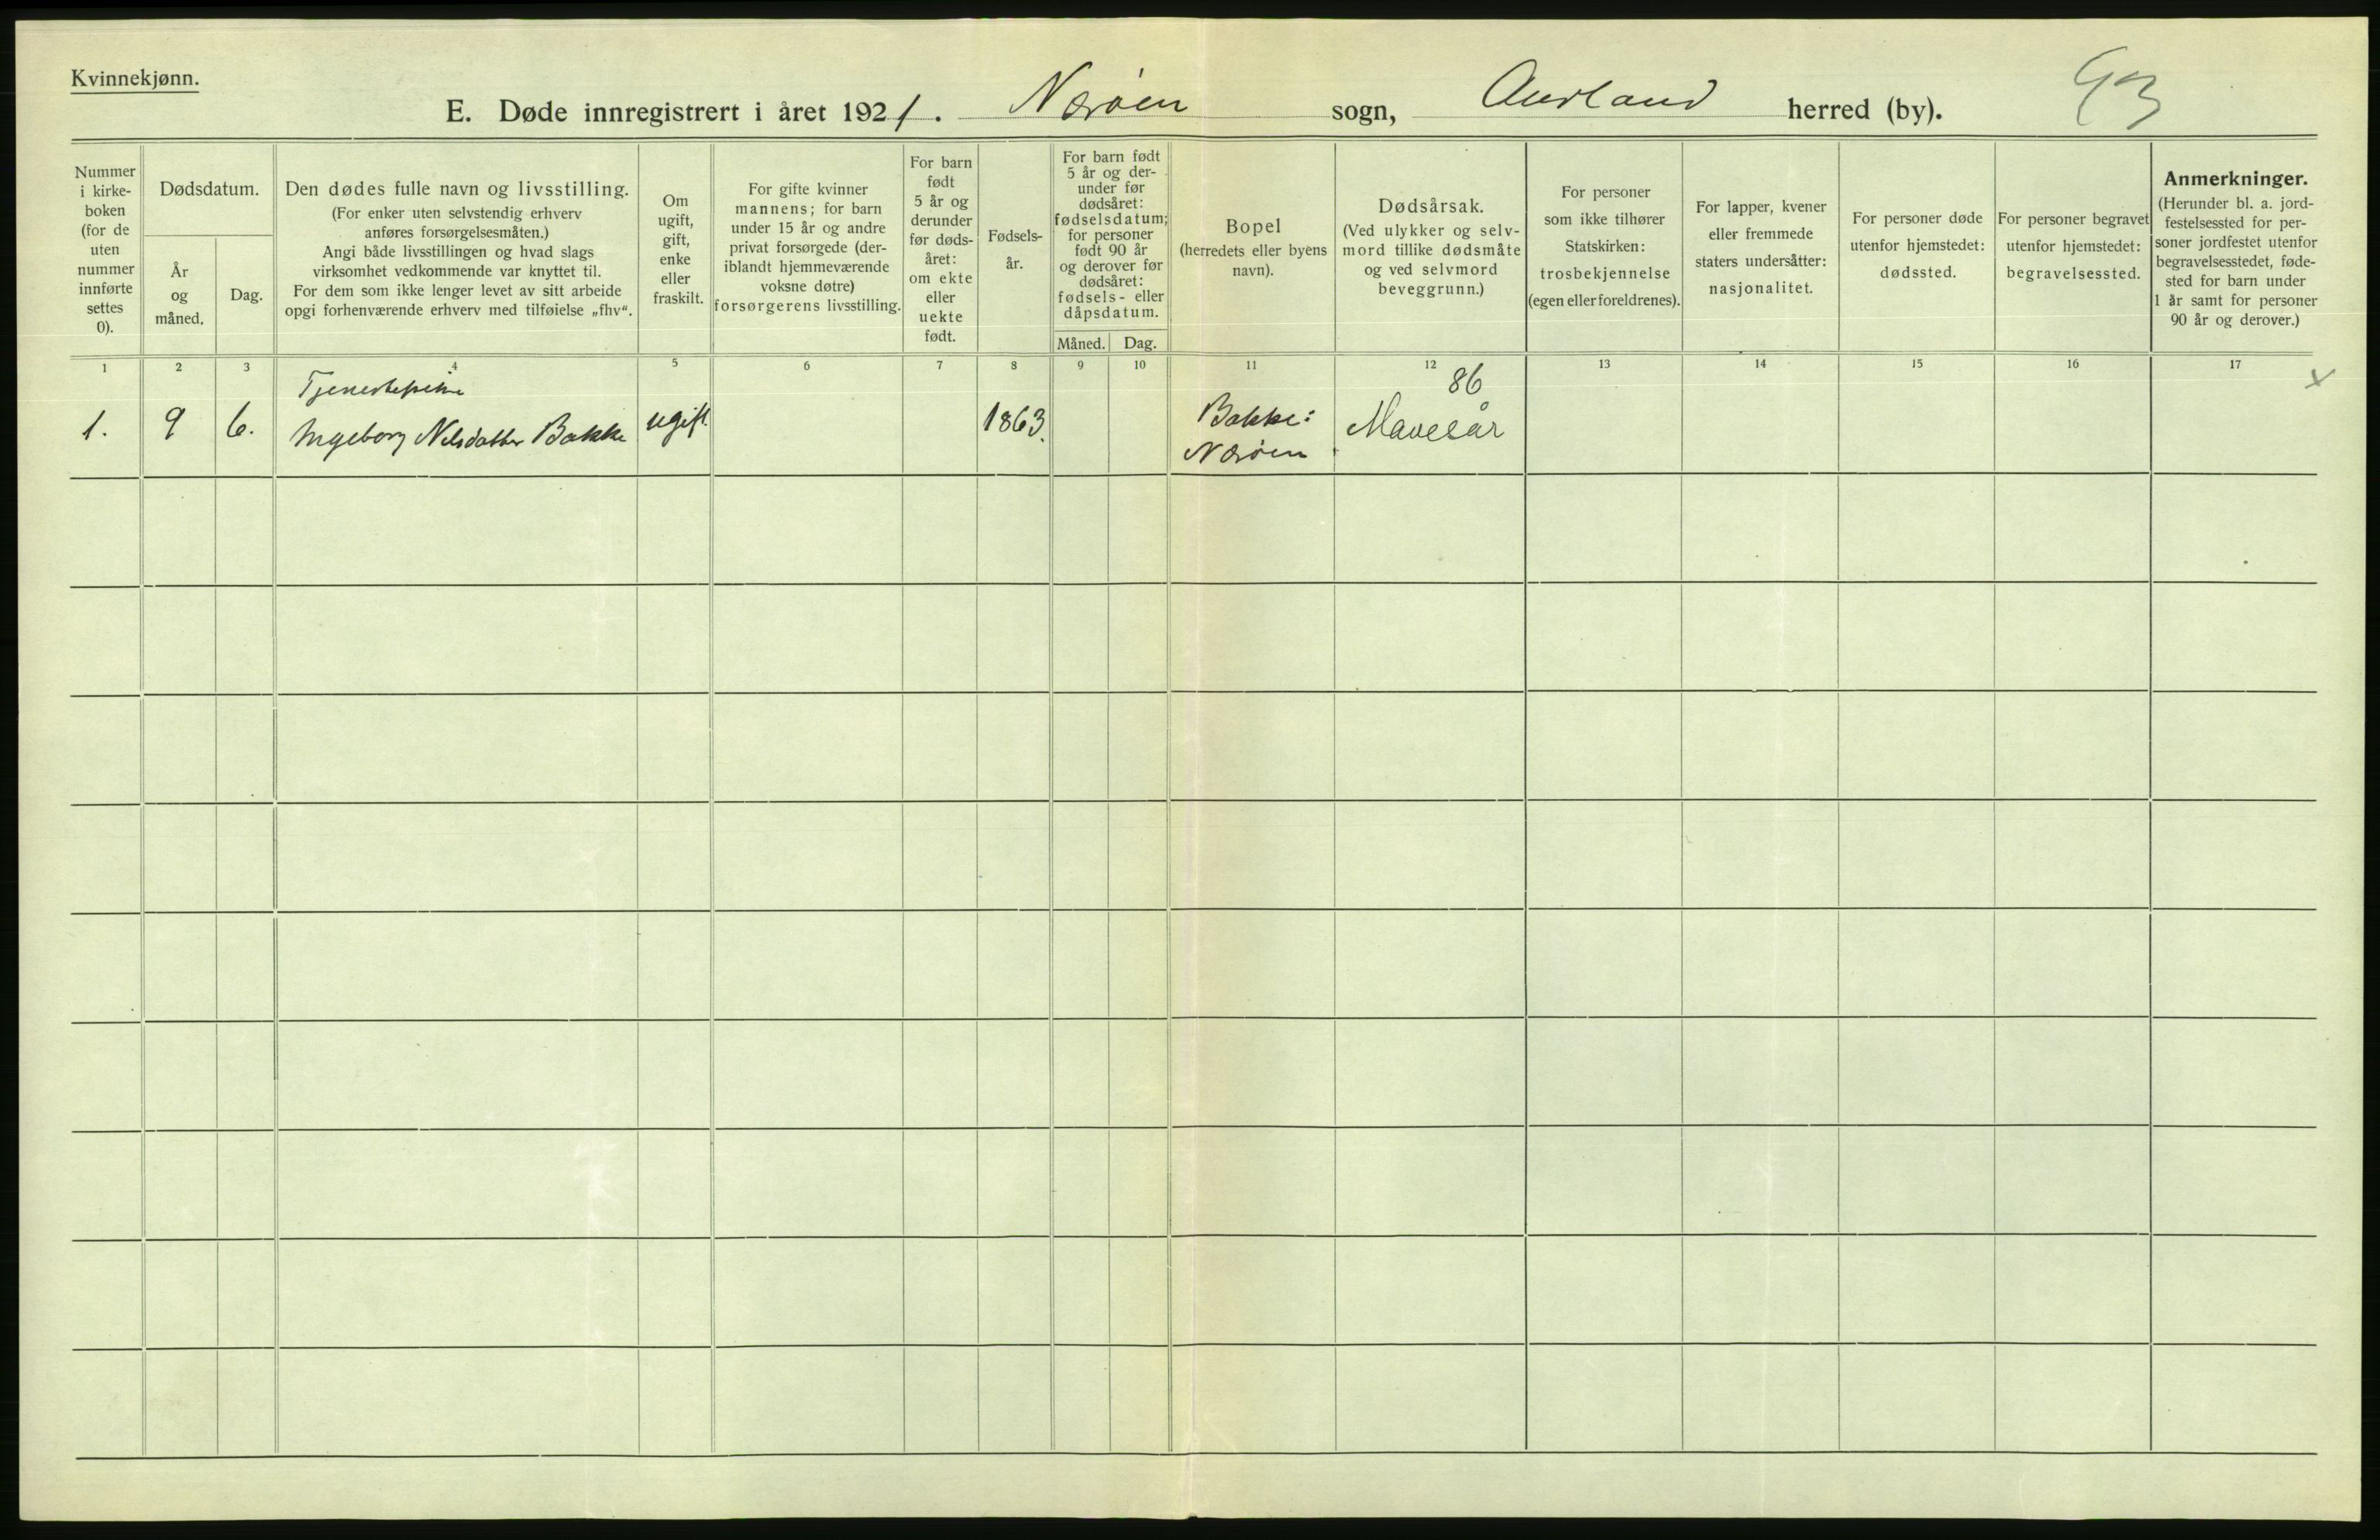 Kvinnekjønn.
E. Døde innregistrert i året 1921. Nærøen sogn, Aurland herred (by). 93
Nummer i kirke- boken (for de uten nummer innførte settes 0).
Dødsdatum.
År og måned.
Dag.
Den dødes fulle navn og livsstilling.
(For enker uten selvstendig erhverv
anføres forsørgelsesmåten.)
Angi både livsstillingen og hvad slags
virksomhet vedkommende var knyttet til.
For dem som ikke lenger levet av sitt arbeide
opgi forhenværende erhverv med tilføielse „fhv“.
Om ugift, gift, enke eller fraskilt.
For gifte kvinner
mannens; for barn
under 15 år og andre
privat forsørgede (der-
iblandt hjemmeværende
voksne døtre)
forsørgerens livsstilling.
For barn født 5 år og derunder før døds- året: om ekte eller uekte født.
Fødsels- år.
For barn født
5 år og der-
under før
dødsåret:
fødselsdatum;
for personer
født 90 år
og derover før
dødsåret:
fødsels- eller
dåpsdatum.
Måned. Dag.
Bopel
(herredets eller byens
navn).
Dødsårsak.
(Ved ulykker og selv-
mord tillike dødsmåte
og ved selvmord
beveggrunn.)
For personer
som ikke tilhører
Statskirken:
trosbekjennelse
(egen eller foreldrenes).
For lapper, kvener
eller fremmede
staters undersåtter:
nasjonalitet.
For personer døde
utenfor hjemstedet:
dødssted.
For personer begravet
utenfor hjemstedet:
begravelsessted.
Anmerkninger.
(Herunder bl. a. jord-
festelsessted for per-
soner jordfestet utenfor
begravelsesstedet, føde-
sted for barn under
1 år samt for personer
90 år og derover.)
1 2 3 4 5 6 7 8 9 10 11 12 13 14 15 16 17
Tjenestepike 86 x
1. 9 6. Ingeborg Nilsdatter Bakke ugift. 1863. Bakke: Mavesår
Nærøen